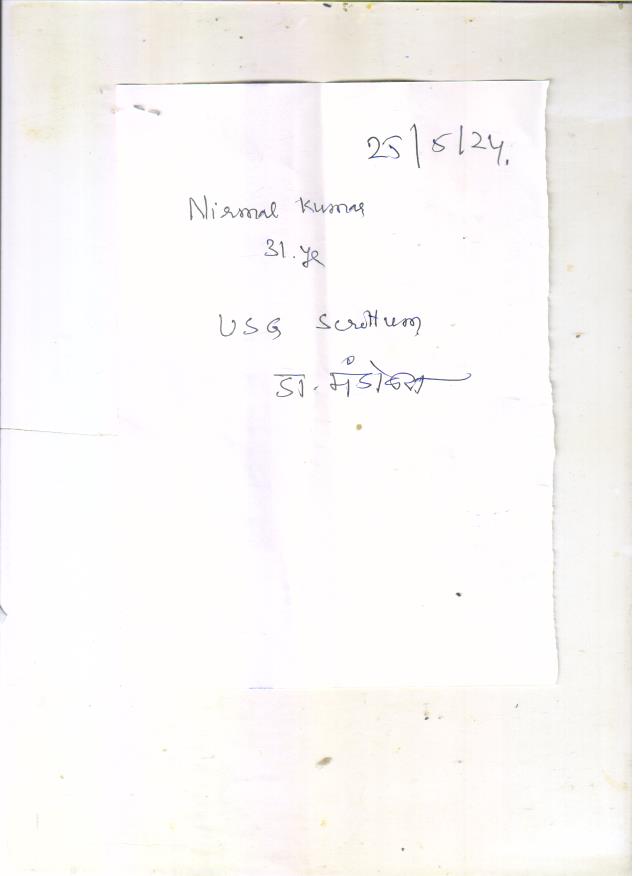 25/5/24.
Nirmal Kumar
31.ye
USG Scrottum
डा.